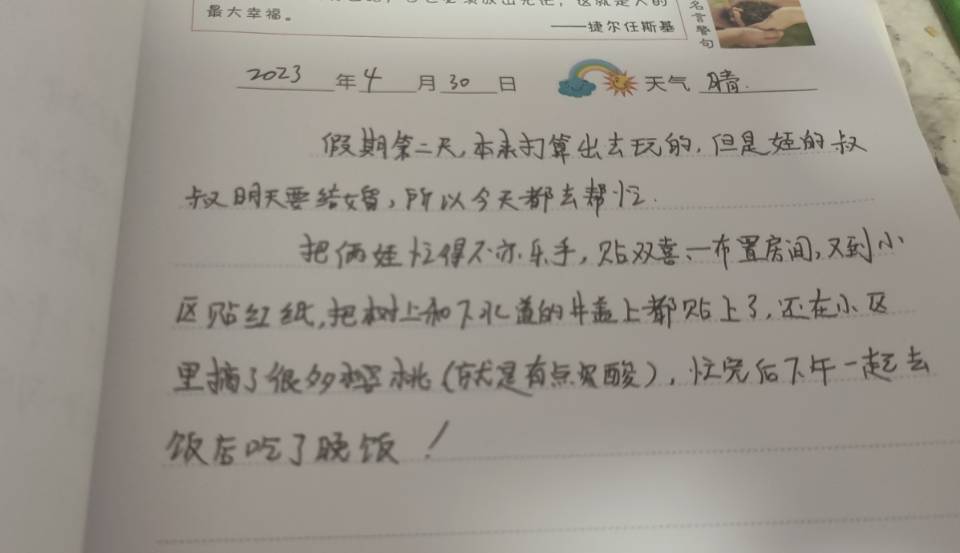 这就是人的
最大幸福。
——捷尔任斯基
名言警句
2023年4月30日 天气 晴.
假期第二天,本来打算出去玩的,但是娃的叔
叔明天要结婚,所以今天都去帮忙.
把俩娃忙得不亦乐乎,贴双喜、布置房间,又到小
区贴红纸,把树上和下水道的井盖上都贴上了,还在小区
里摘了很多樱桃(就是有点发酸),忙完后下午一起去
饭店吃了晚饭!